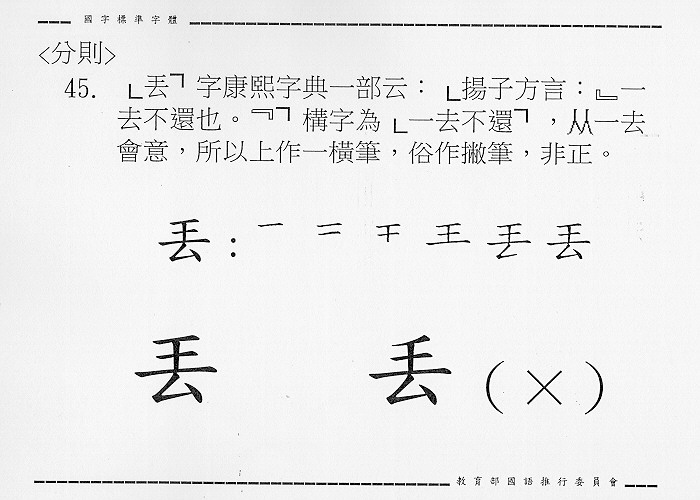 國字標準字體
<分則>
45. 「丟」字康熙字典一部云：「揚子方言：『一
去不還也。』」構字為「一去不還」，从一去
會意，所以上作一橫筆，俗作撇筆，非正。
丟：一 二 干 王 丟 丟
丟 丢 (×)
教育部國語推行委員會